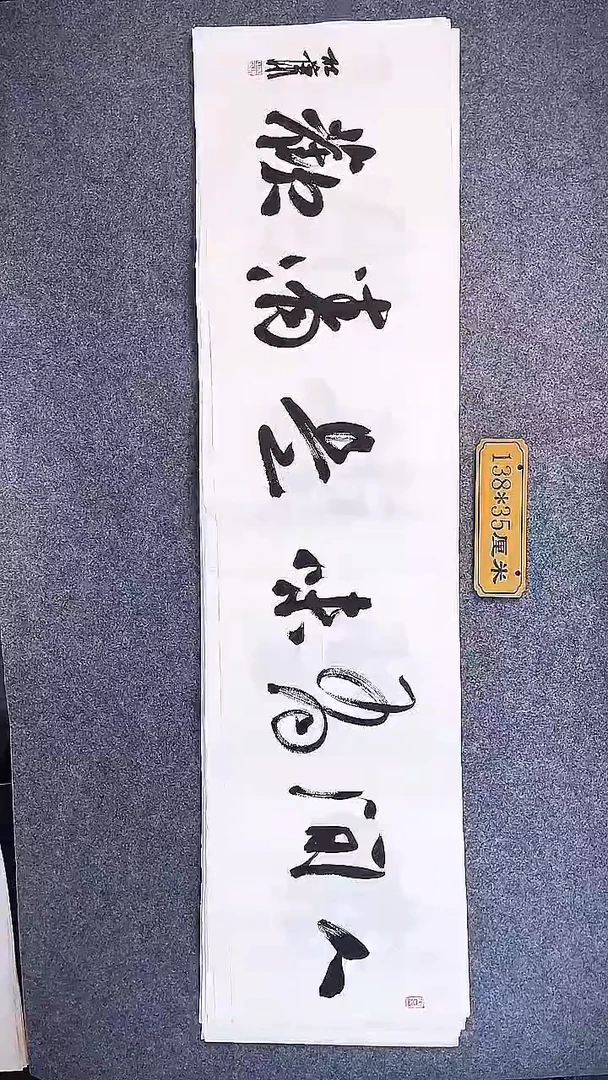 人间有味是清歡
138*35厘米